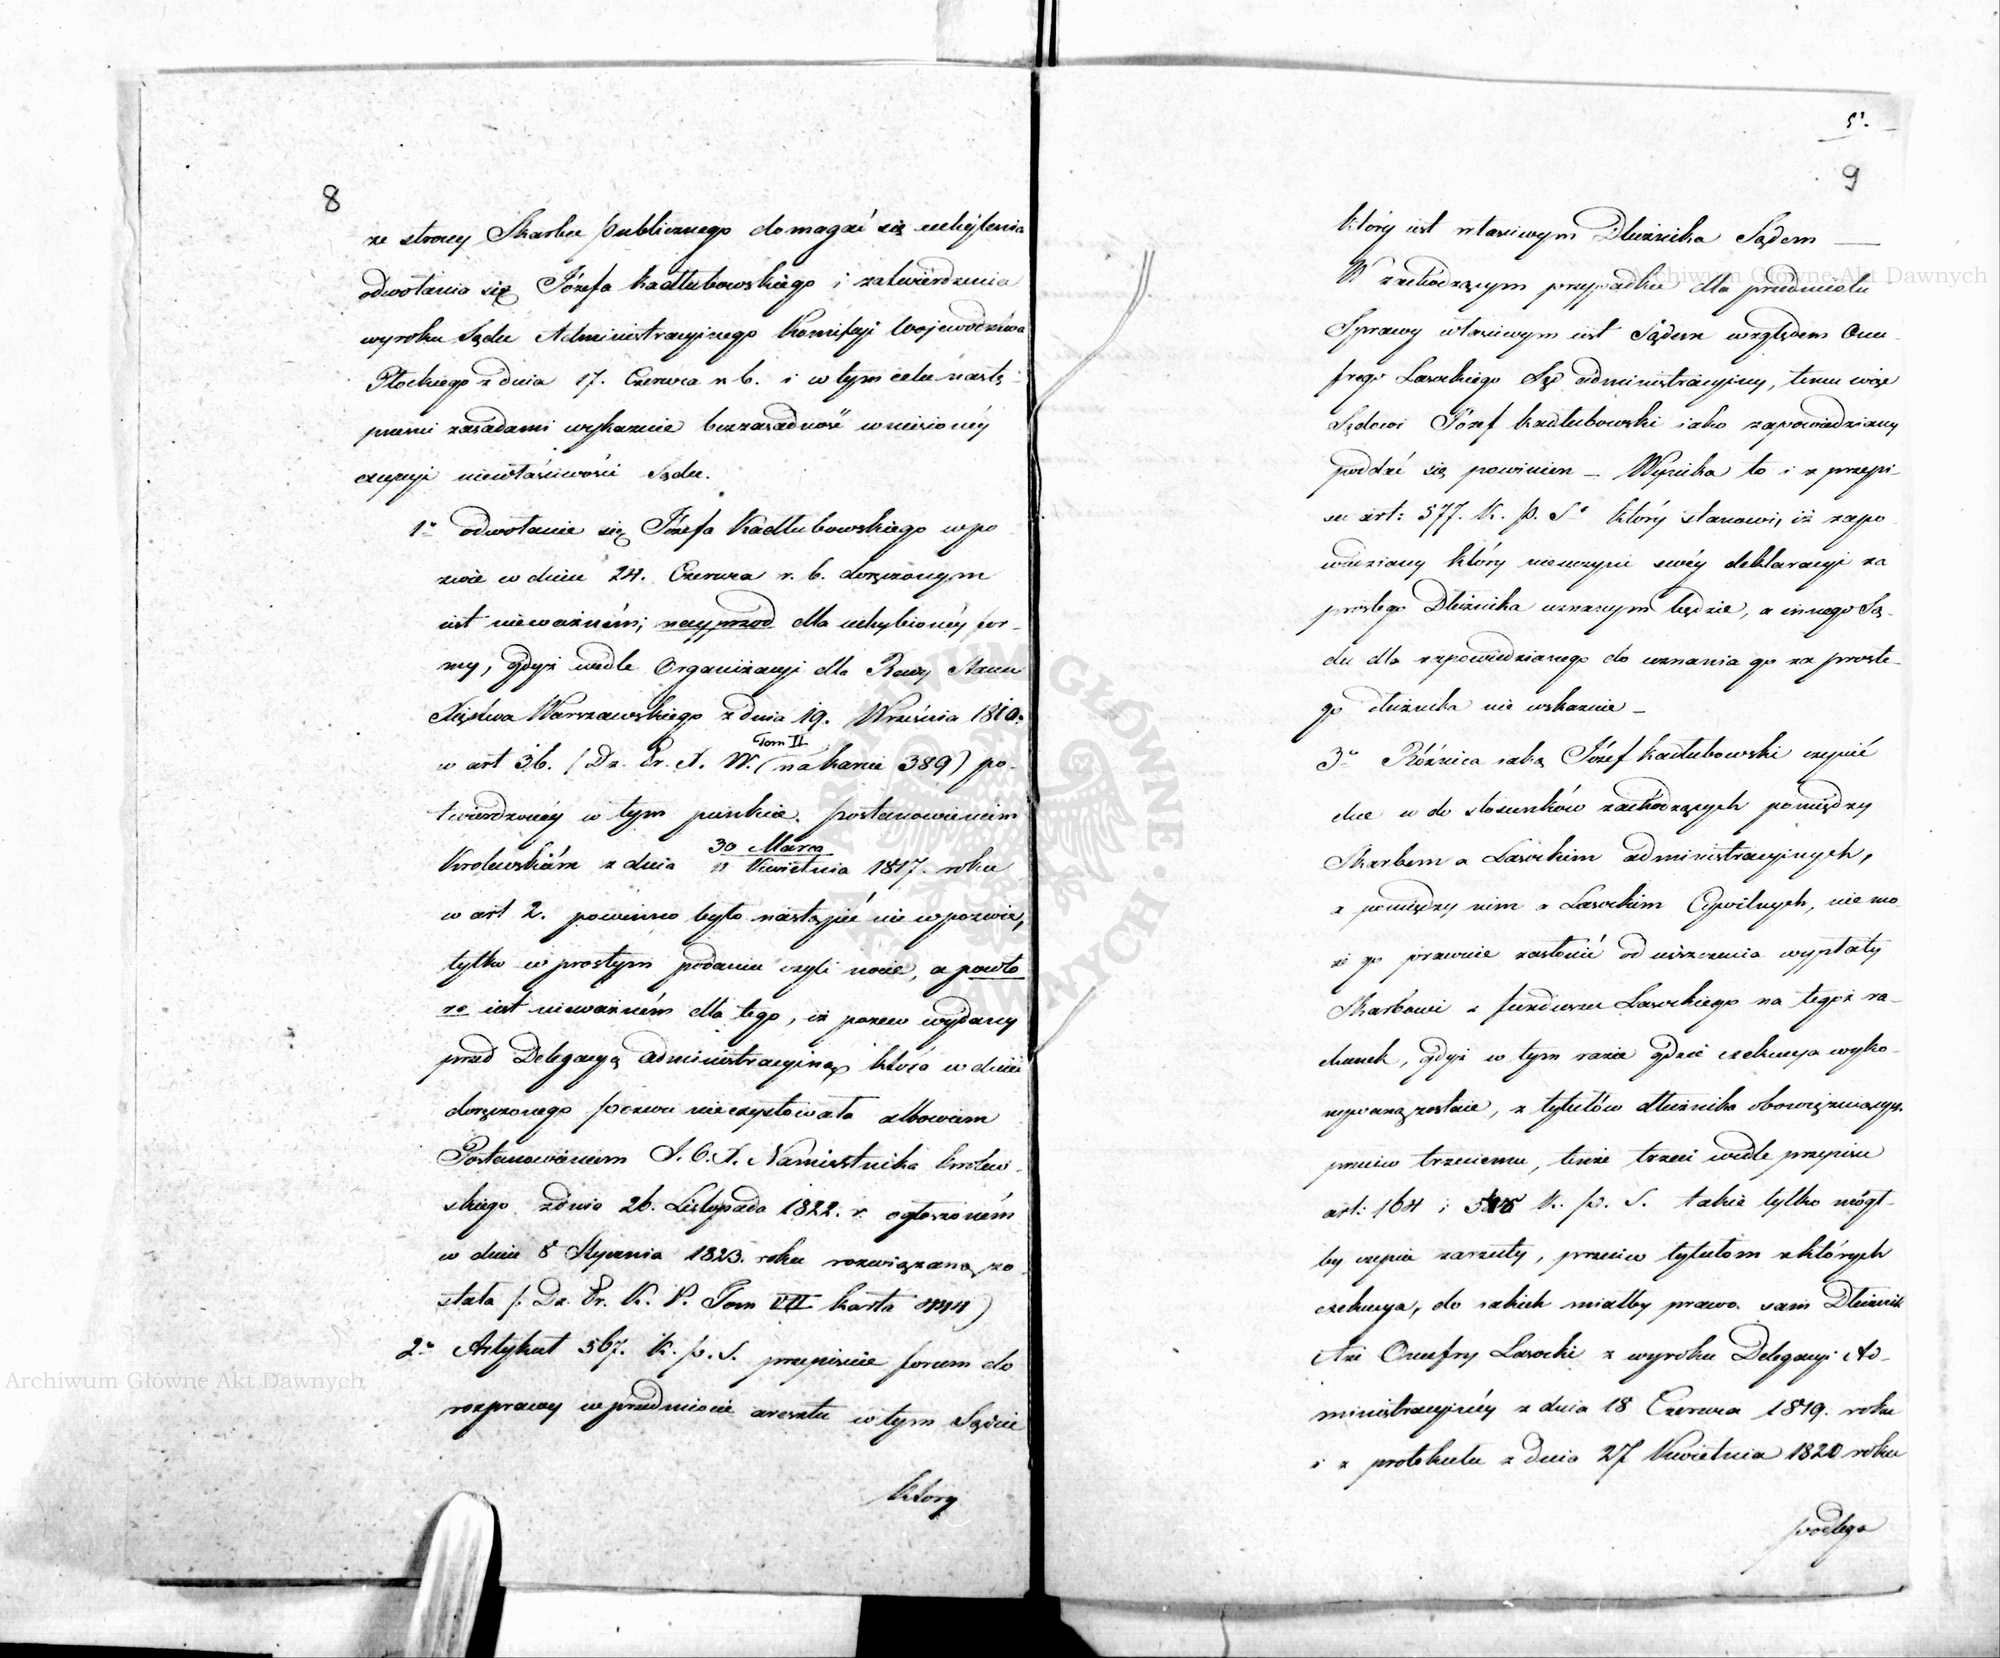 8
ze strony Skarbu publicznego domagać się uchylenia
odwołania się Józefa Kadłubowskiego i zatwierdzenia
wyroku Sądu Administracyjnego Komissyi Wojewodztwa
Płockiego z dnia 17. Czerwca r. b. i w tym celu nastę-
pnemi zasadami wykazuie bezzasadność wniesionéy
excepcyi niewłaściwości Sądu.
1o odwołanie się Józefa Kadłubowskiego w po
zwie w dniu 24. Czerwca r. b. doręczonym
iest nieważném; nayprzód dla uchybionéy for-
my, gdyż wedle Organizacyi dla Rady Stanu
Xięstwa Warszawskiego z dnia 19. Września 1810.
w art 36. (Dz. Pr. X. W. Tom II (na karcie 389) po-
twierdzonéy w tym punkcie, postanowieniem
Krolewskiém z dnia 30 Marca Kwietnia 1817. roku
w art 2. powinno było nastąpić nie w pozwie,
tylko w prostym podaniu czyli nocie, a powtó
re iest nieważném dla tego, iż pozew wydany
przed Delegacyą Administracyiną, która w dniu
doręczonego pozwu nie exystowała albowiem
Postanowieniem J. O. X. Namiestnika Krolew-
skiego z dnia 26. Listopada 1822. r. ogłoszoném
w dniu 8 Stycznia 1823. roku rozwiązaną zo
stała (. Dz. Pr. K. P. Tom VII karta)
2o Artykuł 567. K. p. S. przepisuie forum do
rozprawy w przedmiocie aresztu w tym Sądzie
który
5.
9
który iest właściwym Dłużnika Sądem —
W zachodzącym przypadku dla przedmiotu
Sprawy właściwym iest Sądem względem Onu-
frego Lasockiego Sąd administracyiny, temu więc
Sądowi Józef Kadłubowski iako zapowiedziany
poddać się powinien — Wynika to i z przepi-
su art: 577. K. p. S. który stanowi, iż zapo
wiedziany który nieuczyni swéy deklaracyi za
prostego Dłużnika uznanym będzie, a innego Są-
du dla zapowiedzianego do uznania go za proste-
go dłużnika nie wskazuie —
3o Różnica iaką Józef Kadłubowski czynić
chce w do stosunków zachodzących pomiędzy
Skarbem a Lasockim administracyinych,
a pomiędzy nim a Lasockim Cywilnych, nie mo-
że go prawnie zasłonić od uiszczenia wypłaty
Skarbowi z funduszu Lasockiego na tegoż ra-
chunek, gdyż w tym razie gdzie exekucya wyko-
nywaną zostaie, z tytułów dłużnika obowiązuiących
przeciw trzeciemu, tenże trzeci wedle przepisu
art: 164 i K. p. S. takie tylko mógł-
by czynić zarzuty, przeciw tytułom z których
exekucya, do iakich miałby prawo sam Dłużnik
Ani Onufry Lasocki z wyroku Delegacyi Ad-
ministracyinéy z dnia 18 Czerwca 1819. roku
i z protokułu z dnia 27 Kwietnia 1820 roku
podlega
Archiwum Główne Akt Dawnych
Archiwum Główne Akt Dawnych
ARCHIWUM GŁÓWNE AKT DAWNYCH